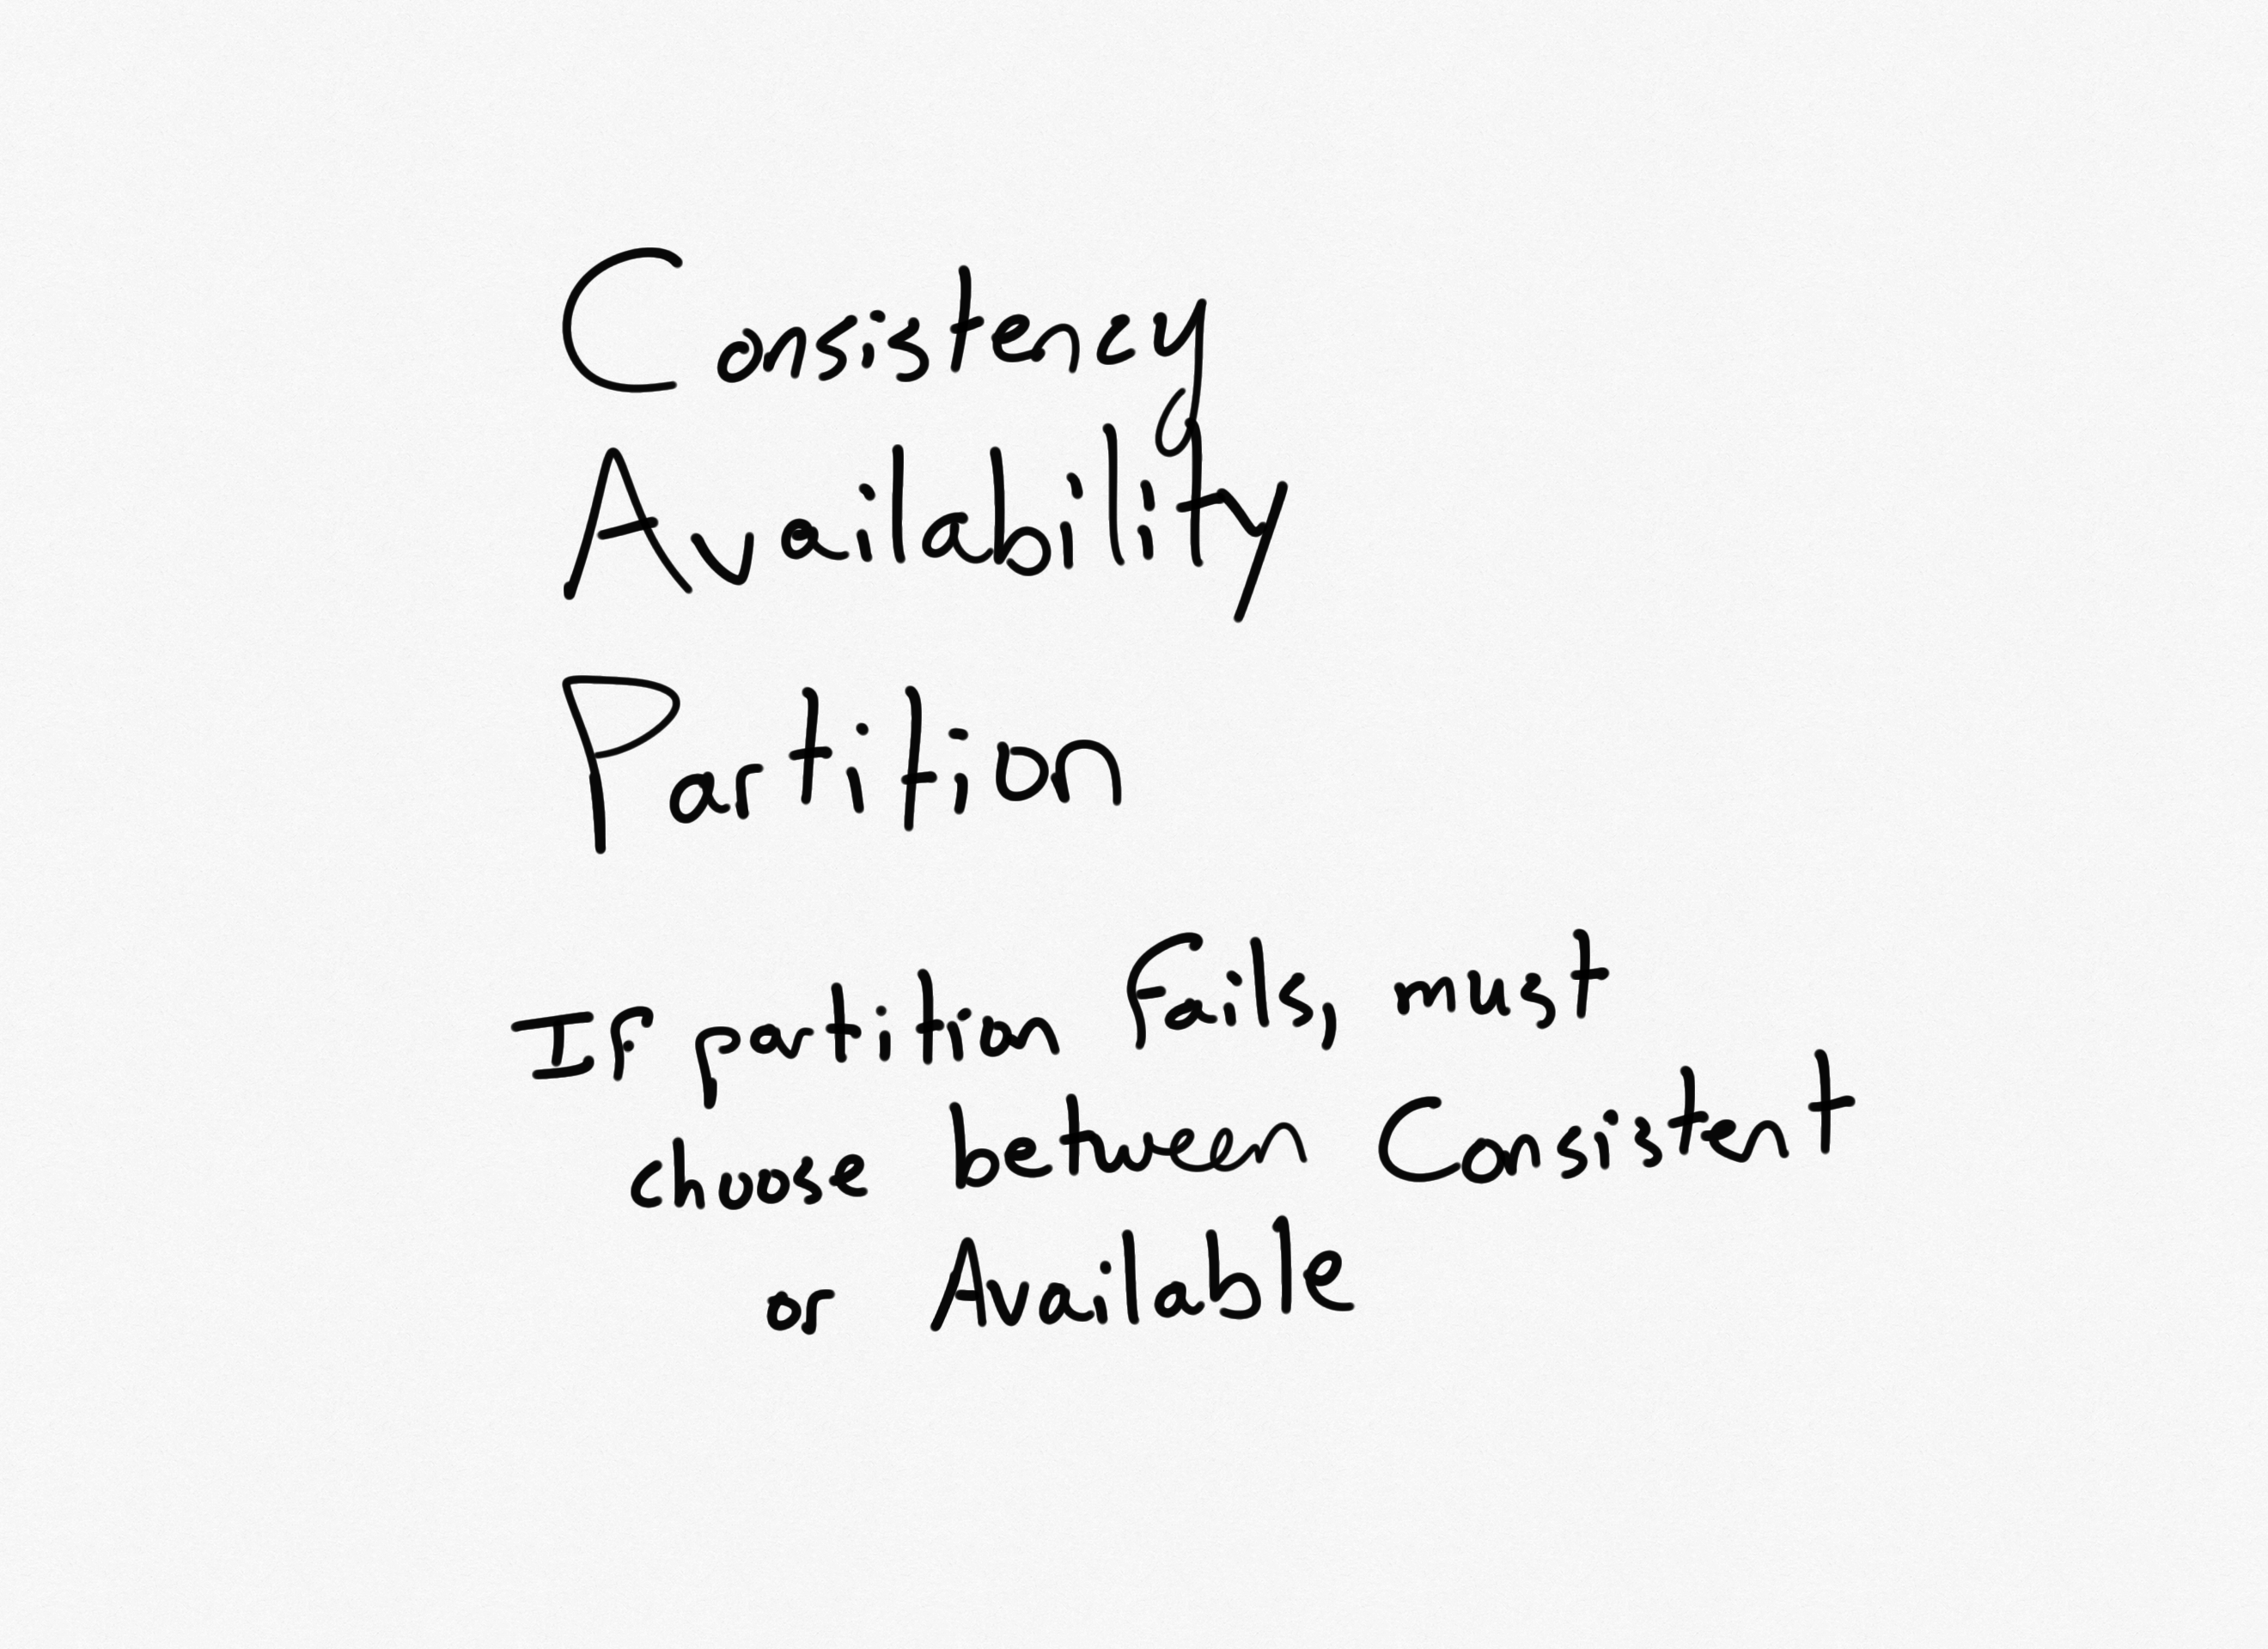 Consistency
Availability
Partition
If partition fails, must
choose between Consistent
or Available